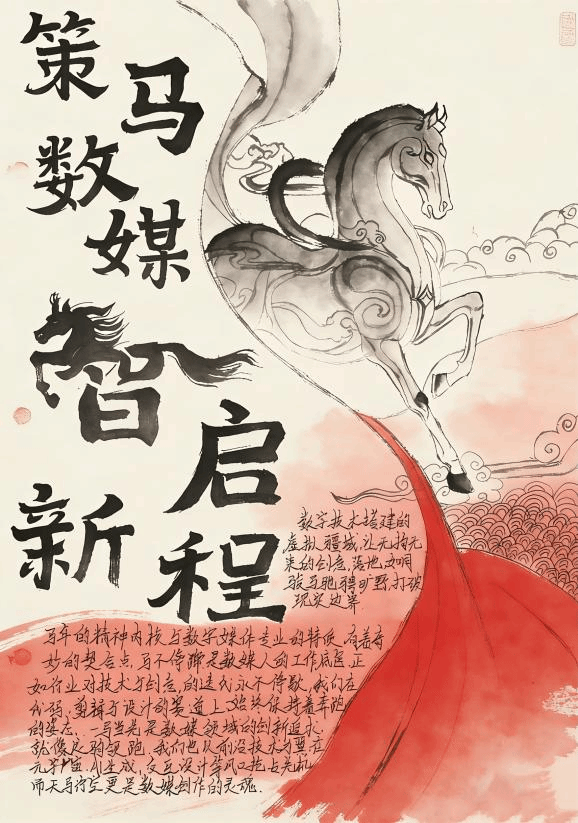 策马
数媒
智启
新程
数字技术搭建的
虚拟疆域,让无拘无
束的创意落地,如同
骏马驰骋旷野,打破
现实边界.
马年的精神内核与数字媒体专业的特质,有着奇
妙的契合点,马不停蹄是数媒人的工作底色,正
如行业对技术与创意的迭代永不停歇,我们在
代码、剪辑与设计的赛道上,始终保持着奔跑
的姿态.一马当先是数媒领域的创新追求
就像是领跑,我们也从前沿技术
元宇宙、AI生成、交互设计等风口抢占先机
而天马行空更是数媒创作的灵魂.